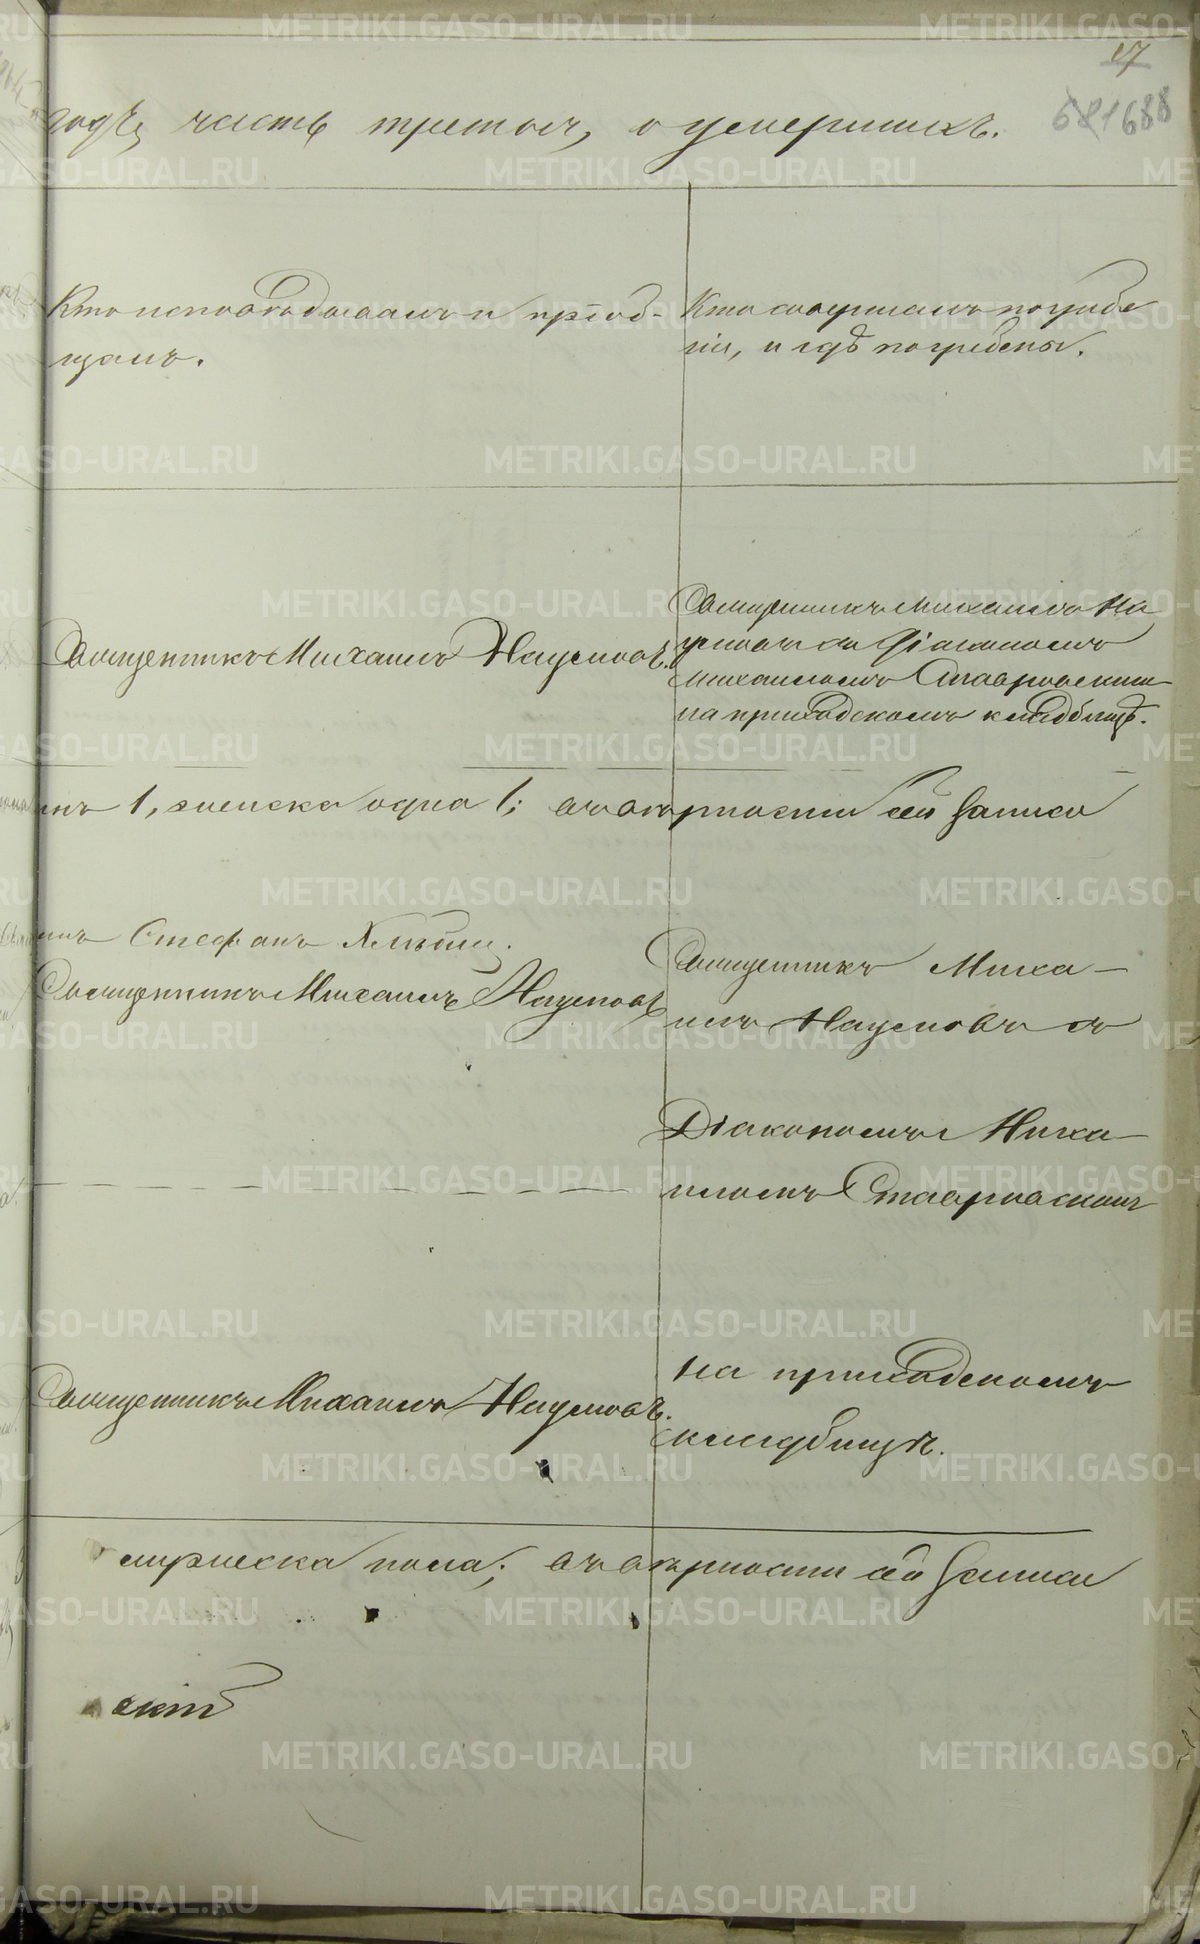 17
681 688
годъ, часть третья, о умершихъ.
Кто исповѣдывалъ и пріоб-
щалъ.
Кто совершалъ погребе
ніе, и гдѣ погребены.
Священникъ Михаилъ Наумовъ.
Священникъ Михаилъ На
умовъ съ Діакономъ
Михаиломъ Ставровскимъ
на приходскомъ кладбищѣ.
инъ 1, женска одна 1; въ вѣрности сей записи
инъ Стефанъ
Священникъ Михаилъ Наумовъ
Священникъ Миха-
илъ Наумовъ съ
Діакономъ Миха-
иломъ Ставровским
Священникъ Михаилъ Наумовъ.
на приходскомъ
кладбищѣ.
мужеска пола; въ вѣрности сей записи
скій
METRIKI.GASO-URAL.RU